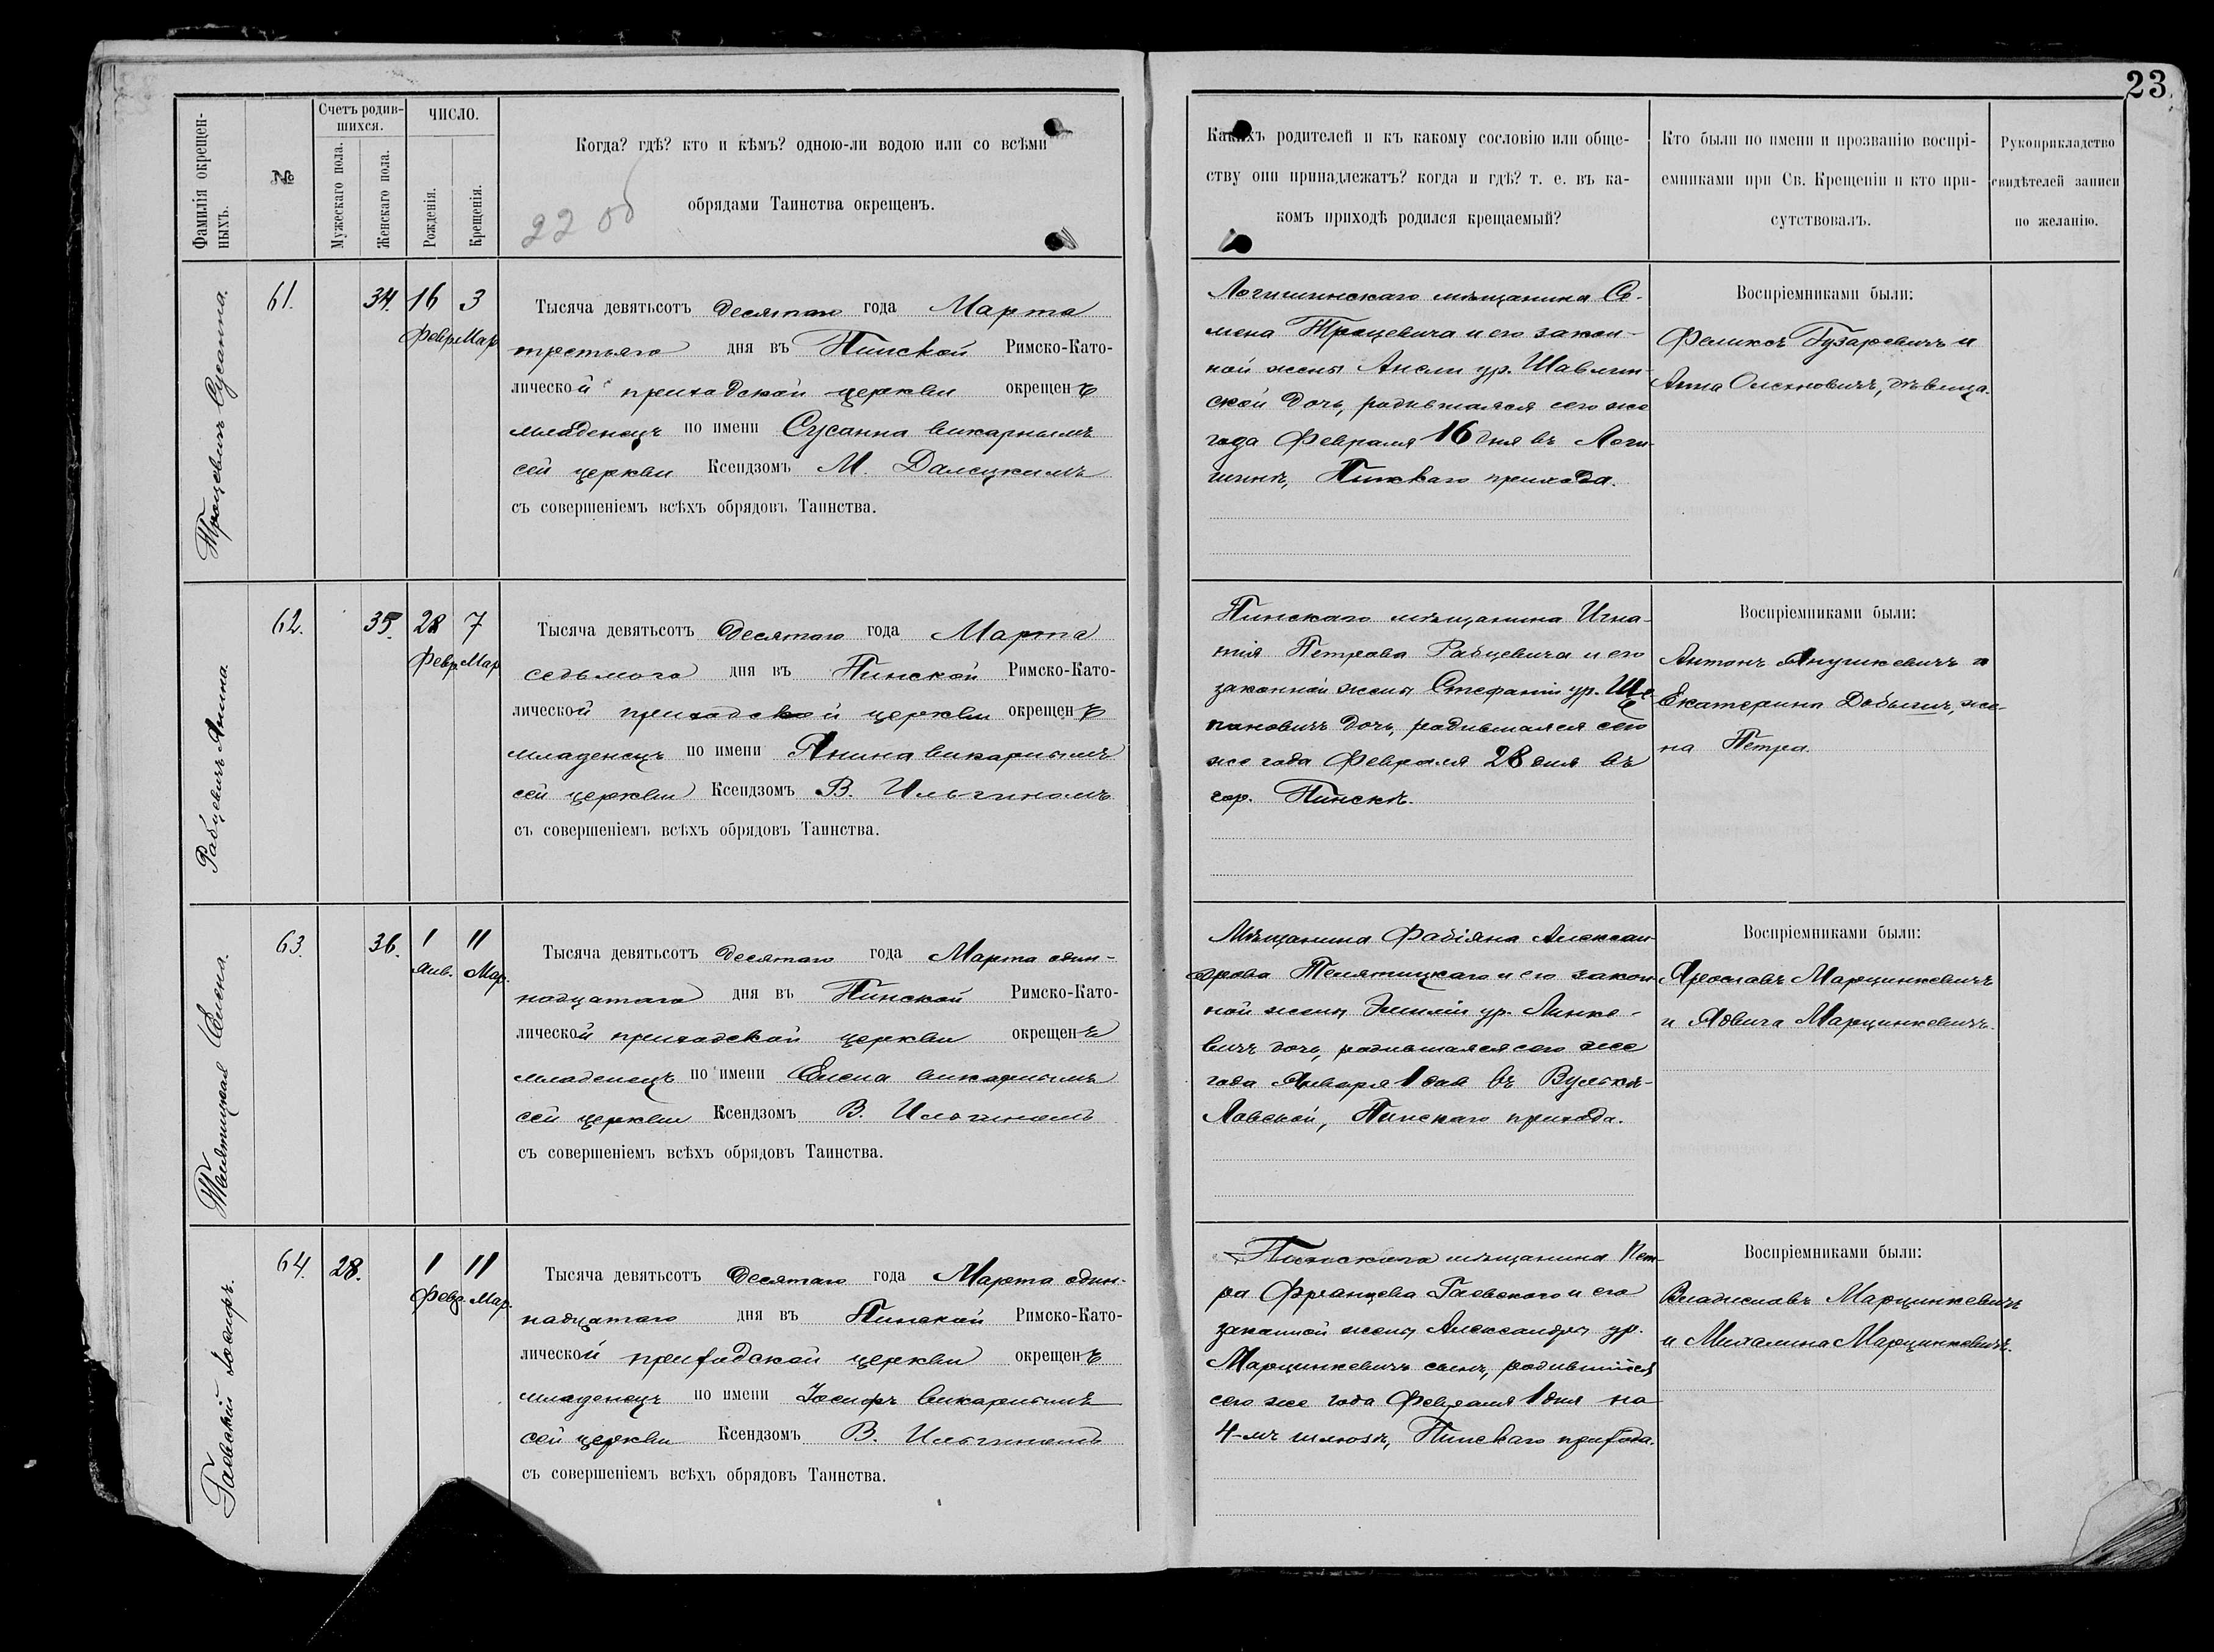 23
Фамилія окрещен-
ныхъ.
№
Счетъ родив-
шихся.
Мужескаго пола.
Женскаго пола.
ЧИСЛО.
Рожденія.
Крещенія.
Когда? гдѣ? кто и кѣмъ? одною-ли водою или со всѣми
обрядами Таинства окрещенъ.
22 об
Какихъ родителей и къ какому сословію или обще-
ству они принадлежатъ? когда и гдѣ? т. е. въ ка-
комъ приходѣ родился крещаемый?
Кто были по имени и прозванію воспрі-
емниками при Св. Крещеніи и кто при-
сутствовалъ.
Рукоприкладство
свидѣтелей записи
по желанію.
Троцевичъ Сусанна.
61.
34.
16
Февр.
3
Мар
Тысяча девятьсотъ десятаго года Марта
третьяго дня въ Пинской Римско-Като-
лической приходской церкви окрещенъ
младенецъ по имени Сусанна викарнымъ
сей церкви Ксендзомъ М. Далецкимъ
съ совершеніемъ всѣхъ обрядовъ Таинства.
Логишинскаго мѣщанина Се-
мена Троцевича и его закон-
ной жены Анели ур. Шавлин-
ской дочь, родившаяся сего же
года Февраля 16 дня въ Логи-
шинѣ, Пинскаго прихода.
Воспріемниками были:
Феликсъ Гузаревичъ и
Анна Олехновичъ, дѣвица.
Рабцевичъ Янина.
62.
35.
28
Февр.
7
Мар
Тысяча девятьсотъ десятаго года Марта
седьмого дня въ Пинской Римско-Като-
лической приходской церкви окрещенъ
младенецъ по имени Янина викарнымъ
сей церкви Ксендзомъ В. Ильгиномъ
съ совершеніемъ всѣхъ обрядовъ Таинства.
Пинскаго мѣщанина Игна-
тія Петрова Рабцевича и его
законной жены Стефаніи ур. Ще-
пановичъ дочь, родившаяся сего
же года Февраля 28 дня въ
гор. Пинскѣ.
Воспріемниками были:
Антонъ Янушкевичъ и
Екатерина Добышъ, же-
на Петра.
Телятицкая Елена.
63.
36.
1
Янв.
11
Мар.
Тысяча девятьсотъ десятаго года Марта один-
надцатаго дня въ Пинской Римско-Като-
лической приходской церкви окрещенъ
младенецъ по имени Елена викарнымъ
сей церкви Ксендзомъ В. Ильгиномъ
съ совершеніемъ всѣхъ обрядовъ Таинства.
Мѣщанина Фабіяна Алексан-
дрова Телятицкаго и его закон-
ной жены Эмиліи ур. Линке-
вичъ дочь, родившаяся сего же
года Января 1 дня въ Вулькѣ-
Лавской, Пинскаго прихода.
Воспріемниками были:
Ярославъ Марцинкевичъ
и Ядвига Марцинкевичъ.
Гаевскій Іосифъ.
64.
28.
1
Февр.
11
Мар.
Тысяча девятьсотъ десятаго года Марта один-
надцатаго дня въ Пинской Римско-Като-
лической приходской церкви окрещенъ
младенецъ по имени Іосифъ викарнымъ
сей церкви Ксендзомъ В. Ильгиномъ
съ совершеніемъ всѣхъ обрядовъ Таинства.
Пинскаго мѣщанина Пет-
ра Францева Гаевского и его
законной жены Александры ур.
Марцинкевичъ сынъ, родившійся
сего же года Февраля 1 дня на
4-мъ шлюзѣ, Пинскаго прихода.
Воспріемниками были:
Владиславъ Марцинкевичъ
и Михалина Марцинкевичъ.